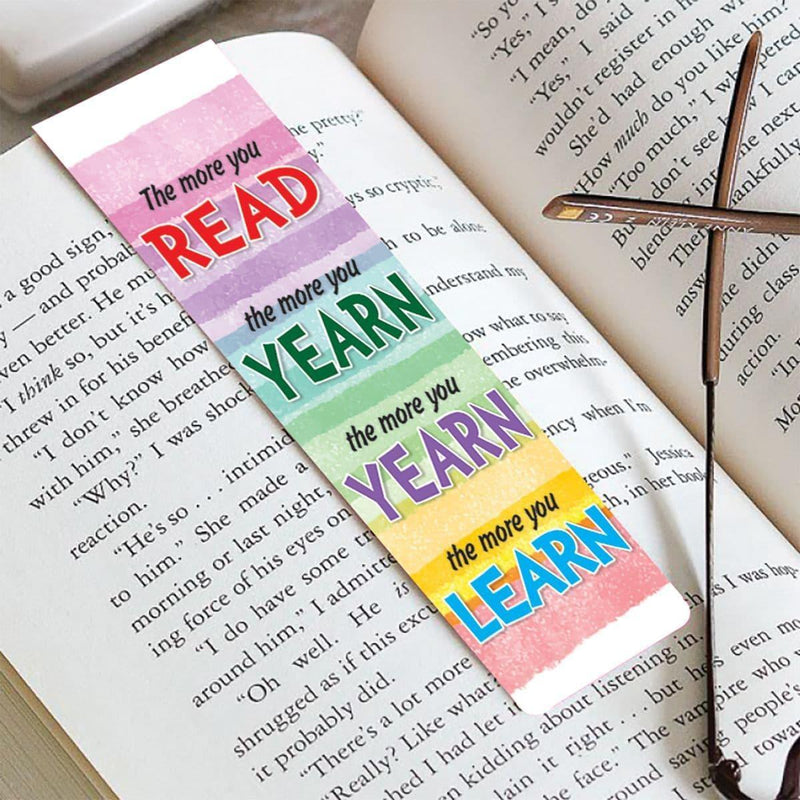 The more you
READ
the more you
YEARN
the more you
YEARN
the more you
LEARN
he pretty?"
ys so cryptic,"
to be alone
nderstand my
ow what to say
embering this
he overwhelm-
ency when I'm
geous." Jessica
h, in her book
s I was hop-
a good sign,
y — and probab
ven better. He mu
"I think so, but it's h
threw in for his benefi
"I don't know how
with him," she breathe
"Why?" I was shock
reaction.
"He's so . . . intimid
to him." She made a
morning or last night,
ing force of his eyes on
"I do have some tr
around him," I admitte
"Oh well. He is
shrugged as if this excu
it probably did.
"There's a lot more
"Really? Like what
shed I had let i
en kidding about listening in.
lain it right . . . but he's even mo
he face." The vampire who
round saving people's
"Yes," I s
"I mean, do
"Yes," I said
wouldn't register in he
She'd had enough wi
"How much do you like him?"
"Too much," I whispered
I don't see how I can
blending into the next
Then
didn't
answ
during class
action.
"In
Mo